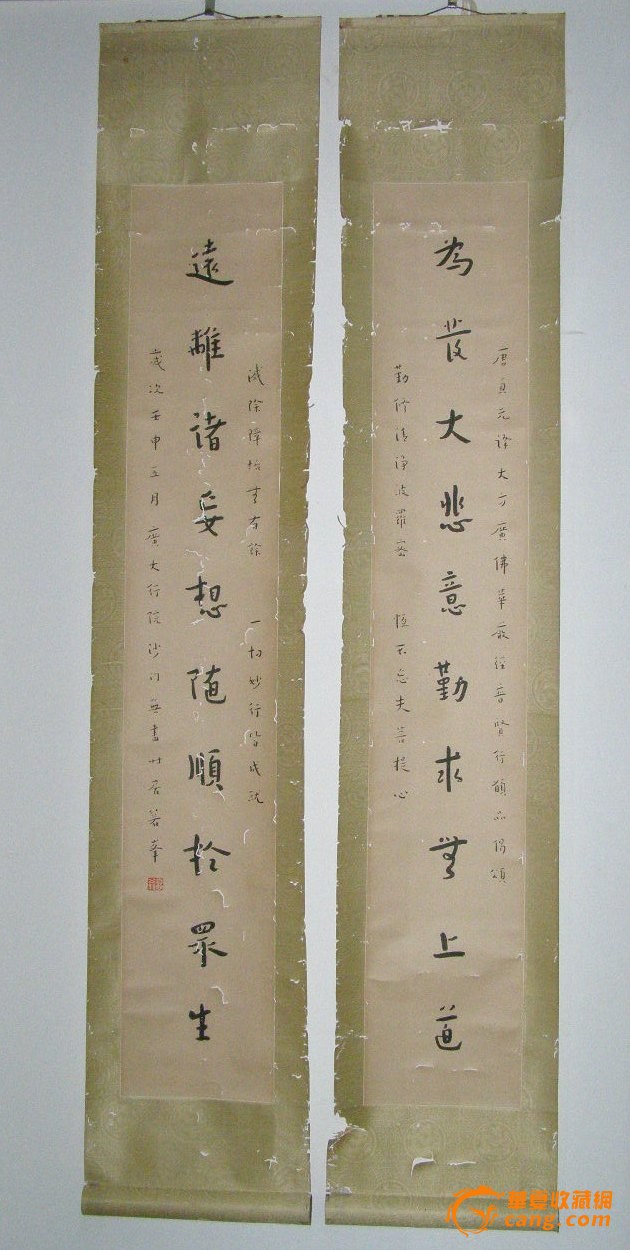 唐貞元譯大方廣佛華嚴經普賢行願品偈頌
為發大悲意勤求無上道
勤修清淨波羅蜜 恒不忘失菩提心
滅除障垢無有餘 一切妙行皆成就
遠離諸妄想隨順於眾生
歲次壬申三月廣大行院沙門
華夏收藏網
cang.com